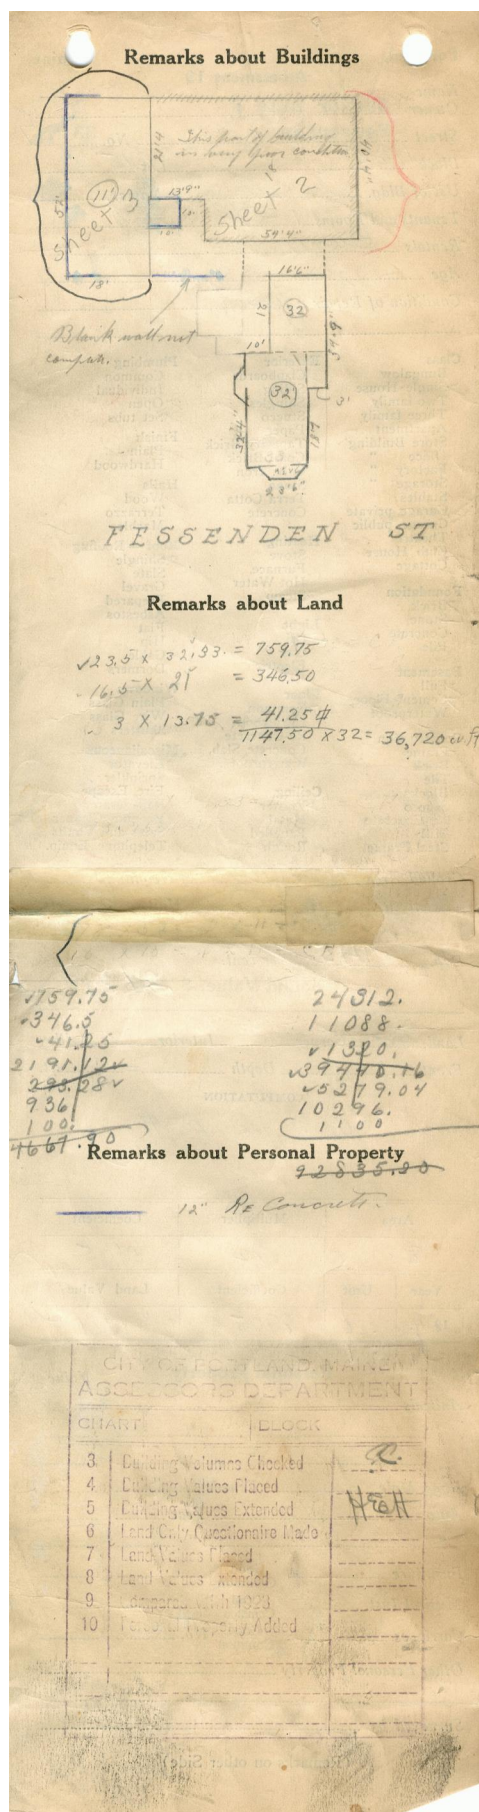 Remarks about Buildings
This part of building
in very poor condition
Sheet 3
11'
Sheet 2
13'9"
10'
10'
54'4"
18'
16'6"
21
32
34'9"
10'
Blank wall not
32
3'
32'4"
23'6"
FESSENDEN ST
Remarks about Land
√23.5 x 32.33. = 759.75
16.5 x 21 = 346.50
3 x 13.75 = 41.25
1147.50 x 32 = 36,720 cu. ft
√759.75
√346.5
√41.25
2191.12√
293.28√
936
100.
4667.90
24312.
11088.
√1320.
√39440.16
√5279.04
10296.
1100
Remarks about Personal Property
92835.20
12" Re Concrete.
CITY OF PORTLAND, MAINE
ASSESSORS DEPARTMENT
CHART BLOCK
3 Building Volumes Checked
4 Building Values Placed
5 Building Values Extended H&H
6 Land Only Questionaire Made
7 Land Values Placed
8 Land Values Extended
9 Compared With 1923
10 Personal Property Added